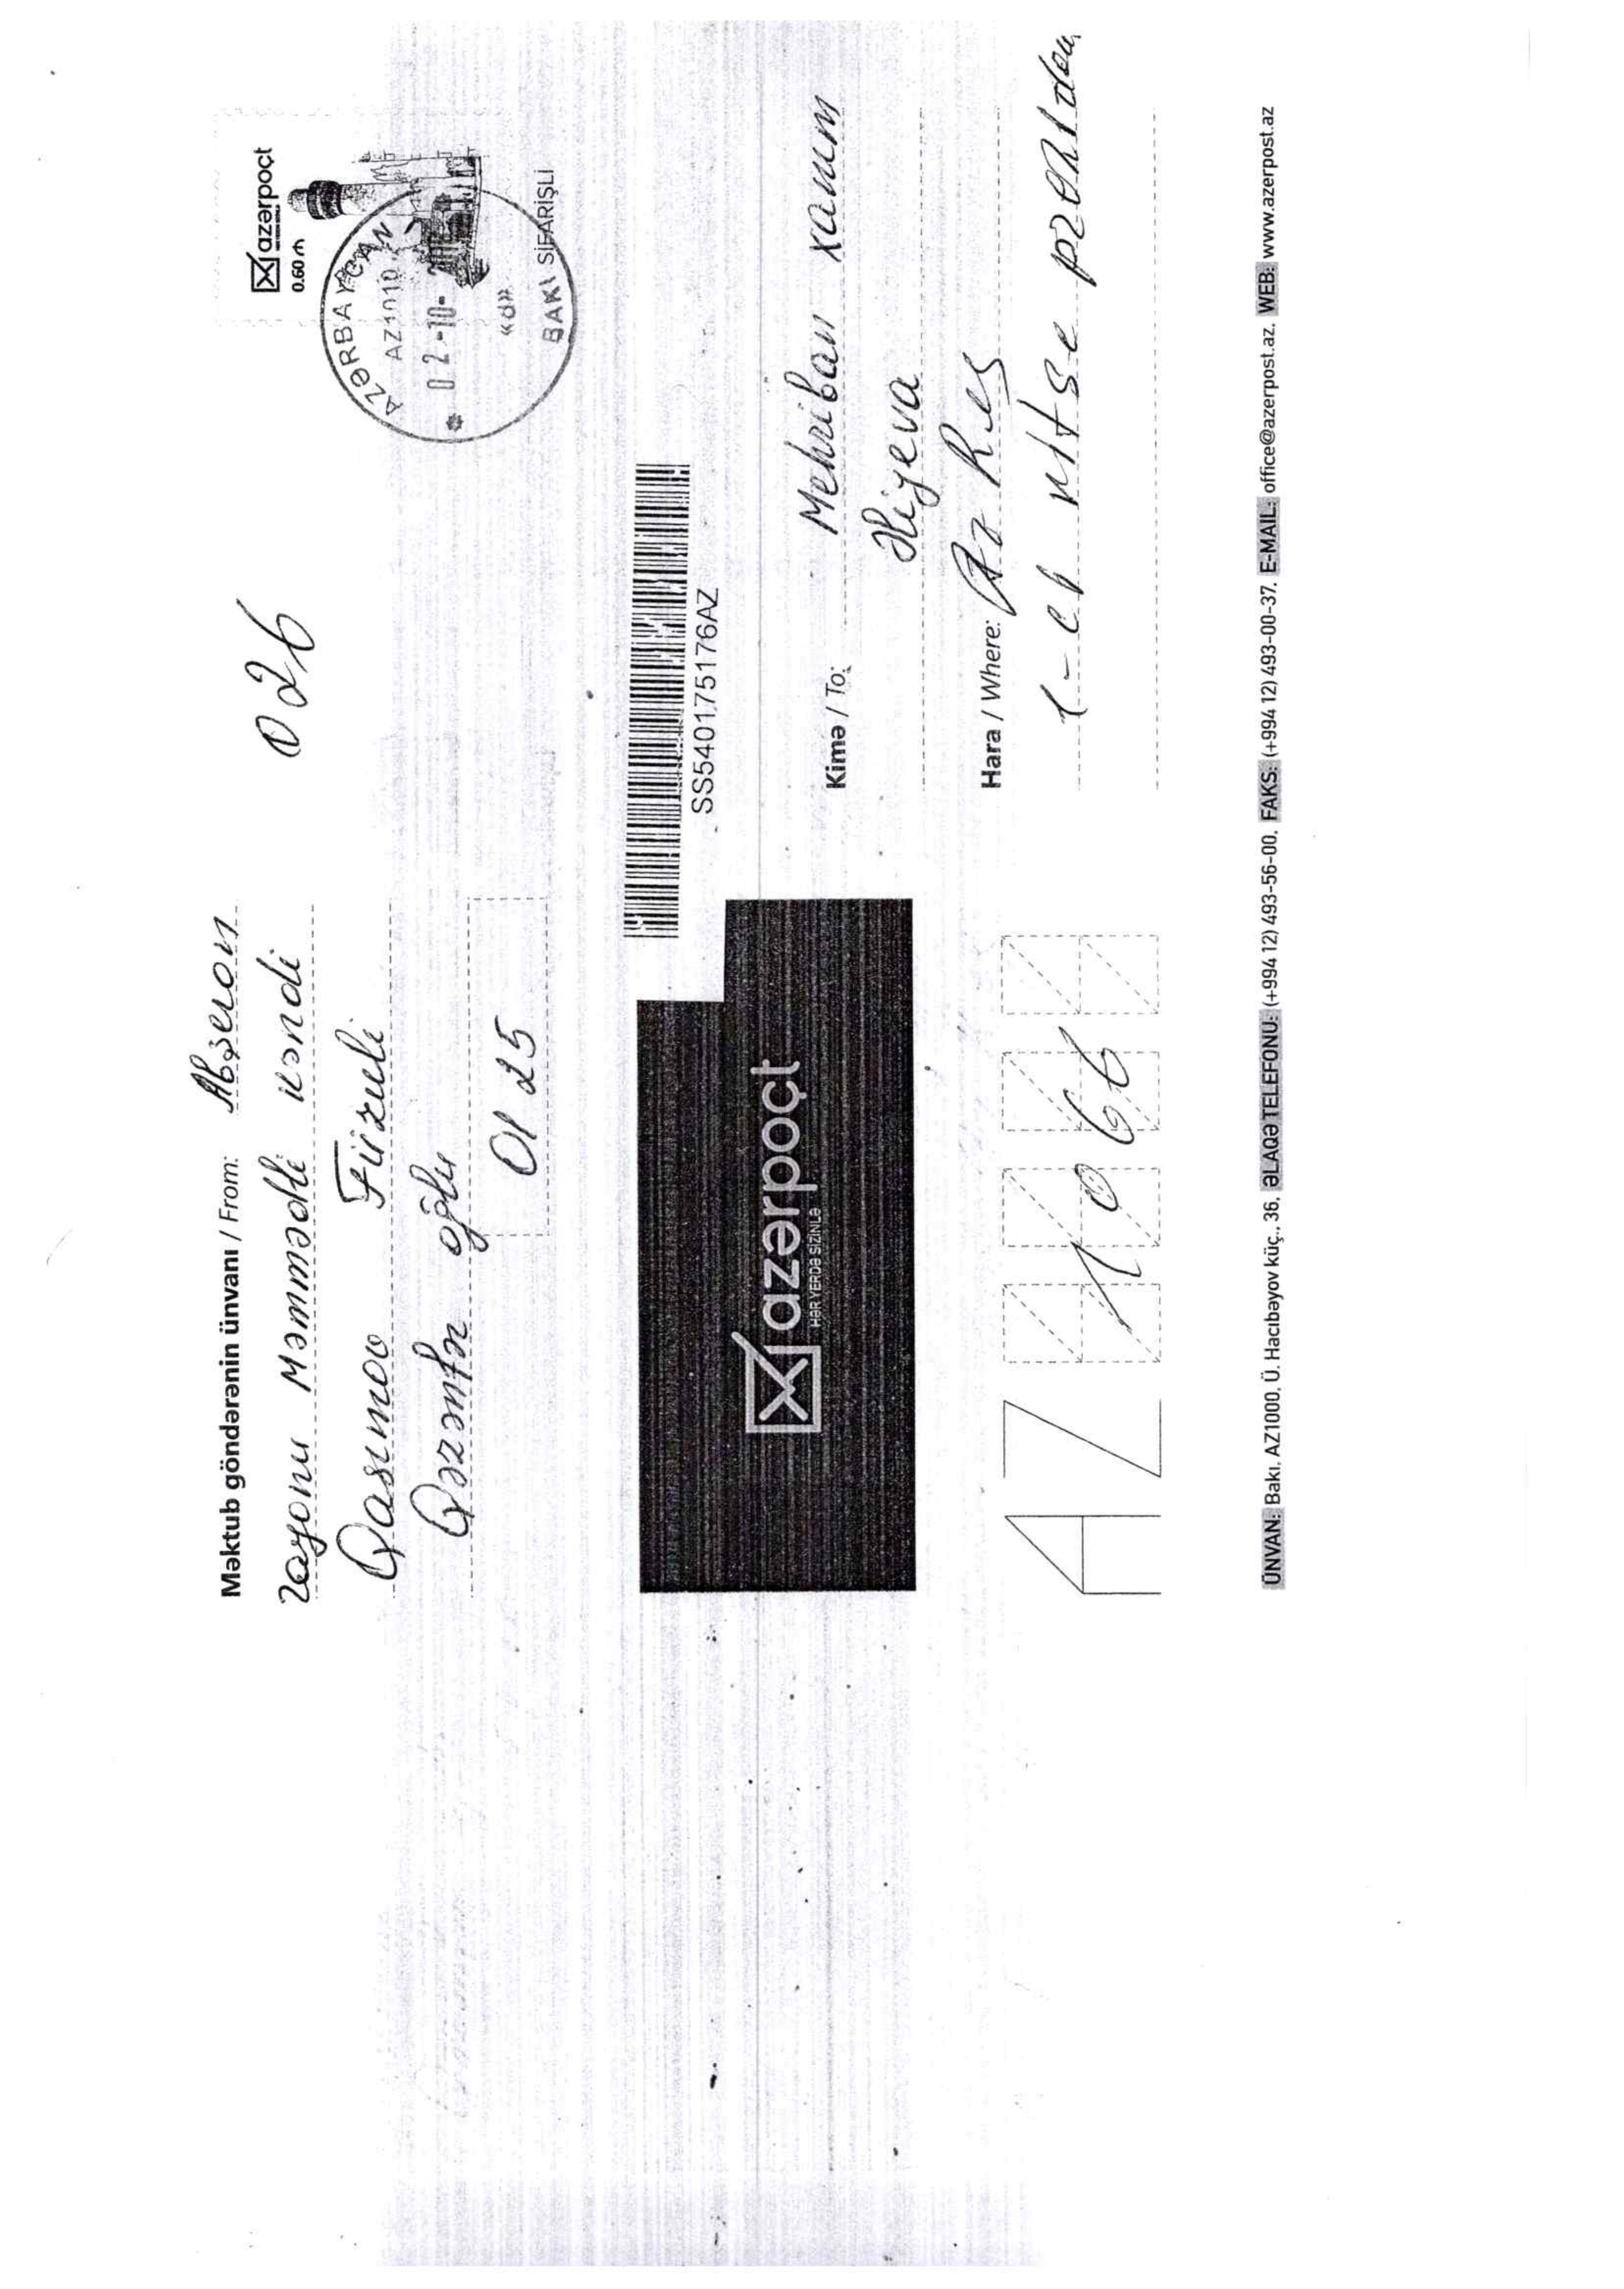 Məktub göndərənin ünvanı / From: Abşeron
rayonu Məmmədli kəndi
Qasımov Füzuli
Qəzənfər oğlu
0125
026
azərpoçt
0.60 ₼
AZƏRBAYCAN
AZ1010
02-10-
«d»
BAKI SİFARİŞLİ
SS540175176AZ
azərpoçt
HƏR YERDƏ SİZİNLƏ
Kimə / To: Mehriban xanım
Əliyeva
Hara / Where: Az Res
1-ci vitse prezident
AZ 1066
ÜNVAN: Bakı, AZ1000, Ü. Hacıbəyov küç., 36. ƏLAQƏ TELEFONU: (+994 12) 493-56-00. FAKS: (+994 12) 493-00-37. E-MAIL: office@azerpost.az. WEB: www.azerpost.az